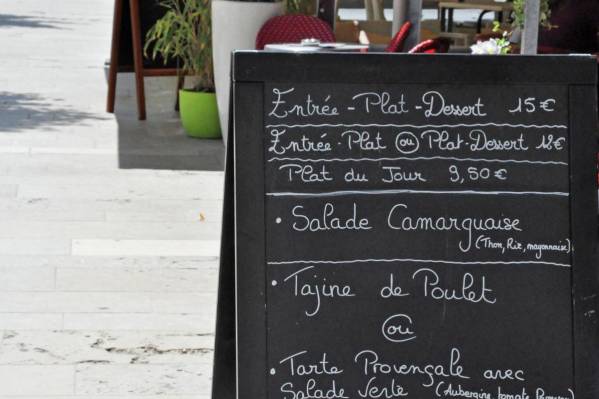 Entrée - Plat - Dessert 15€
Entrée - Plat ou Plat - Dessert 12€
Plat du Jour 9,50€
• Salade Camarguaise
(Thon, Riz, mayonnaise)
• Tajine de Poulet
ou
• Tarte Provençale avec
Salade Verte (Aubergine, tomate,